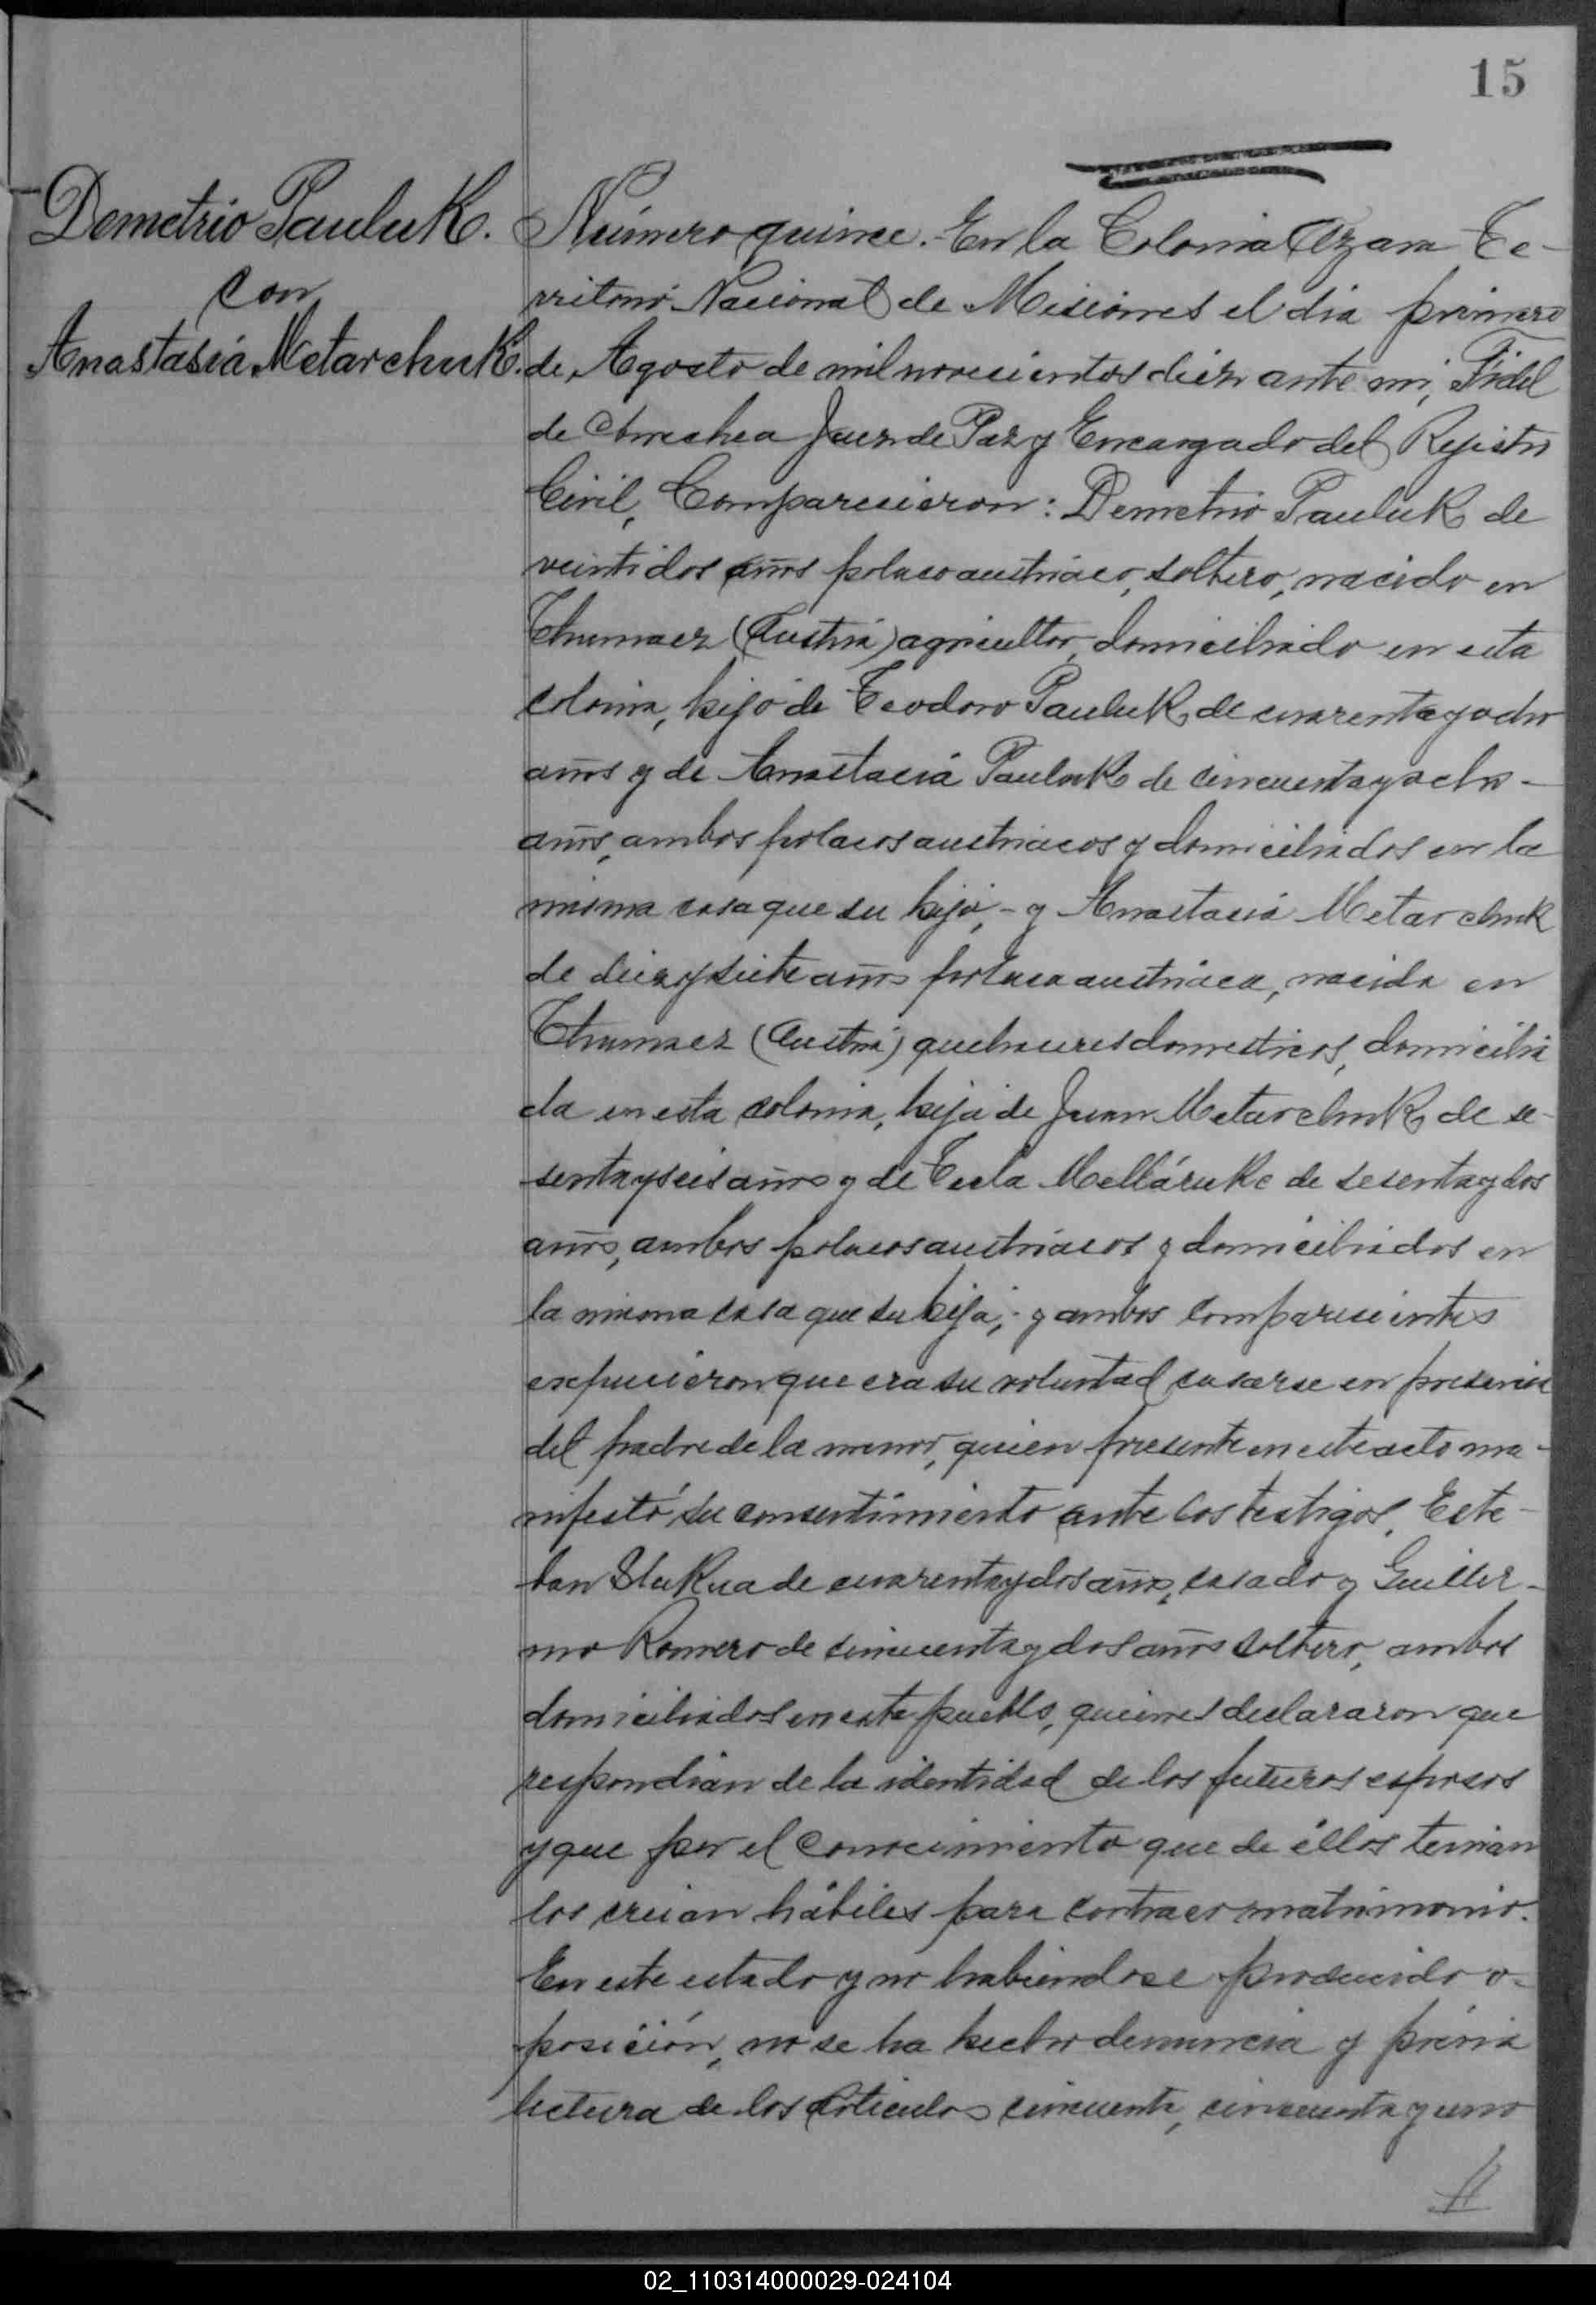 15
Demetrio Pauluk.
con
Anastasia Metarchuk.
Número quince. En la Colonia Azara Te-
rritorio Nacional de Misiones el dia primero
de Agosto de mil novecientos diez ante mi, Fidel
de Juez de Paz y Encargado del Rejistro
Civil, Comparecieron: Demetrio Pauluk de
veintidos años polaco austriaco, soltero, nacido en
(Austria) agricultor, domiciliado en esta
colonia, hijo de Teodoro Pauluk de cuarenta y ocho
años y de Anastacia Pauluk de cincuenta y ocho -
años, ambos polacos austriacos y domiciliados en la
misma casa que su hijo, - y Anastacia Metarchuk
de diez y siete años polaca austriaca, nacida en
(Austria) quehaceres domesticos, domicilia
da en esta colonia, hija de Juan Metarchuk de se-
senta y seis años y de Tecla de sesenta y dos
años, ambos polacos austriacos y domiciliados en
la misma casa que su hija; - y ambos comparecientes
expusieron que era su voluntad casarse en presencia
del padre de la menor, quien presente en este acto ma-
nifestó su consentimiento ante los testigos, Este-
ban de cuarenta y dos años, casado y Guiller-
mo Romero de cincuenta y dos años soltero, ambos
domiciliados en este pueblo, quienes declararon que
respondian de la identidad de los futuros esposos
y que por el conocimiento que de éllos tenian
los creian hábiles para contraer matrimonio.
En este estado y no habiendose producido o-
posición, no se ha hecho denuncia y prévia
lectura de los articulos cincuenta, cincuenta y uno
02_110314000029-024104